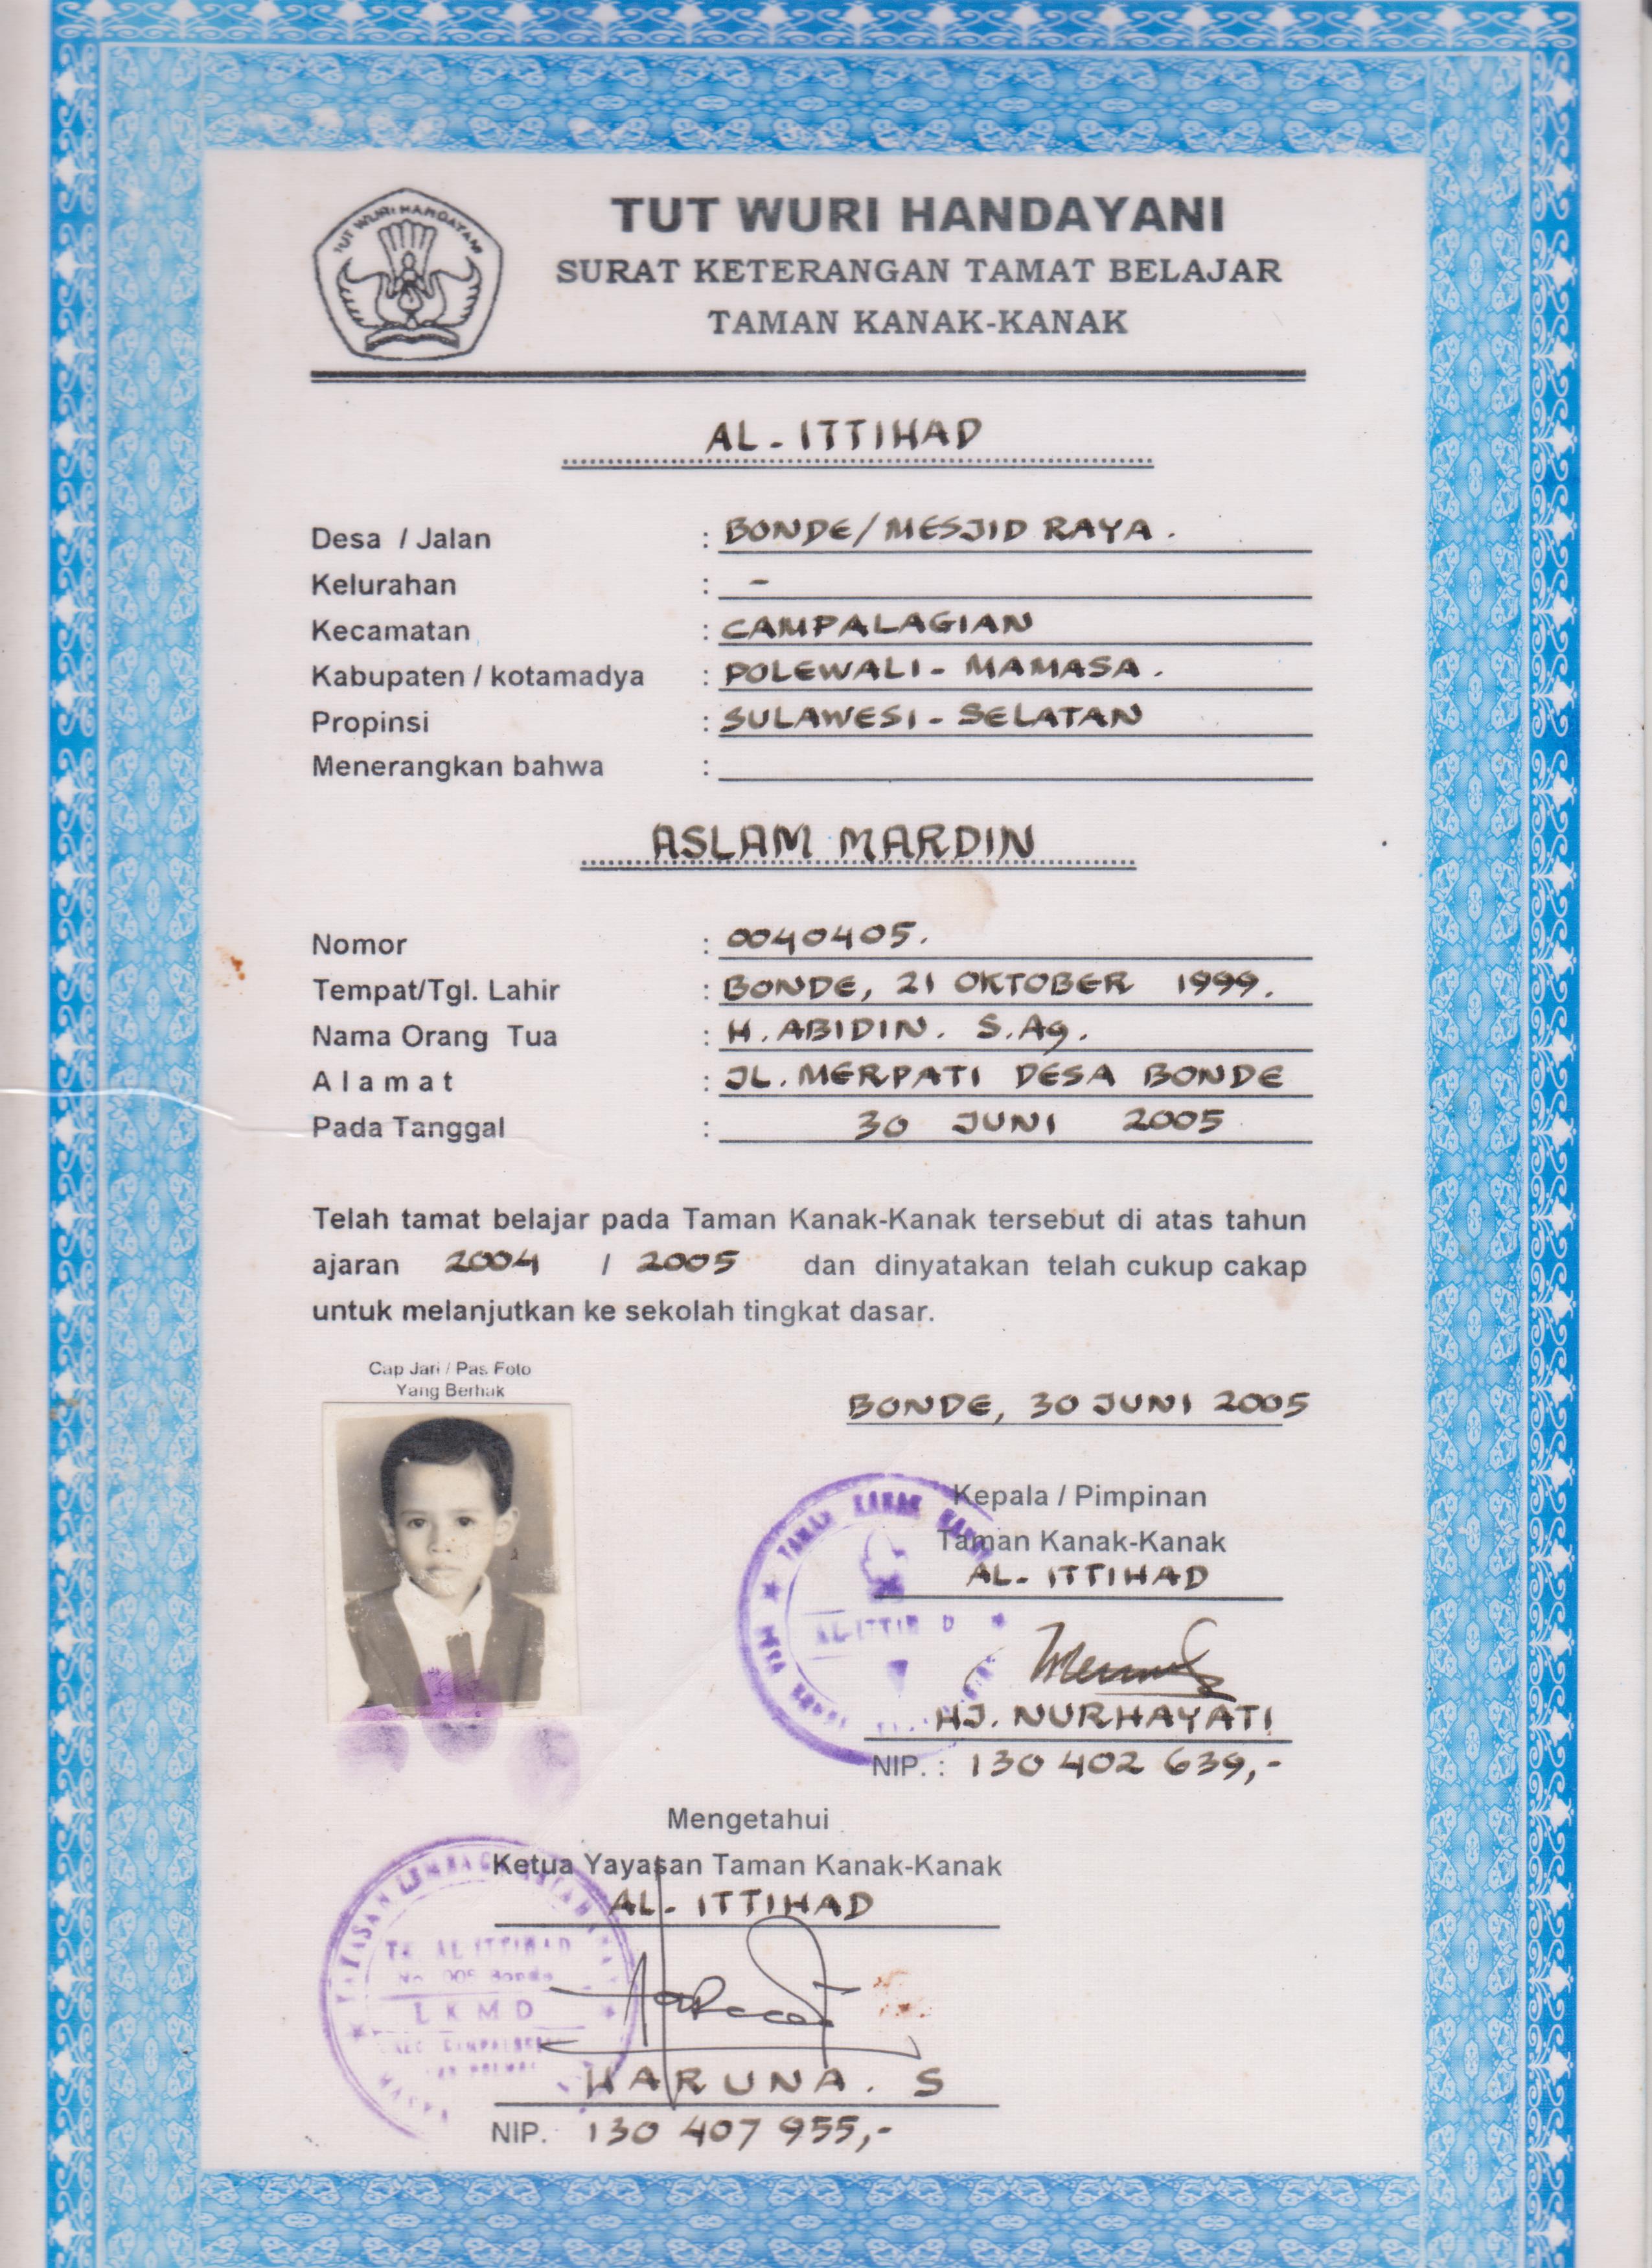 TUT WURI HANDAYANI
TUT WURI HANDAYANI
SURAT KETERANGAN TAMAT BELAJAR
TAMAN KANAK-KANAK
AL-ITTIHAD
Desa / Jalan : BONDE/MESJID RAYA.
Kelurahan : -
Kecamatan : CAMPALAGIAN
Kabupaten / kotamadya : POLEWALI-MAMASA.
Propinsi : SULAWESI-SELATAN
Menerangkan bahwa :
ASLAM MARDIN
Nomor : 0040405.
Tempat/Tgl. Lahir : BONDE, 21 OKTOBER 1999.
Nama Orang Tua : H. ABIDIN. S.Ag.
Alamat : JL. MERPATI DESA BONDE
Pada Tanggal : 30 JUNI 2005
Telah tamat belajar pada Taman Kanak-Kanak tersebut di atas tahun
ajaran 2004 / 2005 dan dinyatakan telah cukup cakap
untuk melanjutkan ke sekolah tingkat dasar.
Cap Jari / Pas Foto
Yang Berhak
BONDE, 30 JUNI 2005
Kepala / Pimpinan
Taman Kanak-Kanak
AL-ITTIHAD
TAMAN KANAK
DESA
HJ. NURHAYATI
NIP. : 130 402 639,-
Mengetahui
Ketua Yayasan Taman Kanak-Kanak
AL-ITTIHAD
YAYASAN
TK AL ITTIHAD
Bonde
LKMD
HARUNA. S
NIP. 130 407 955,-